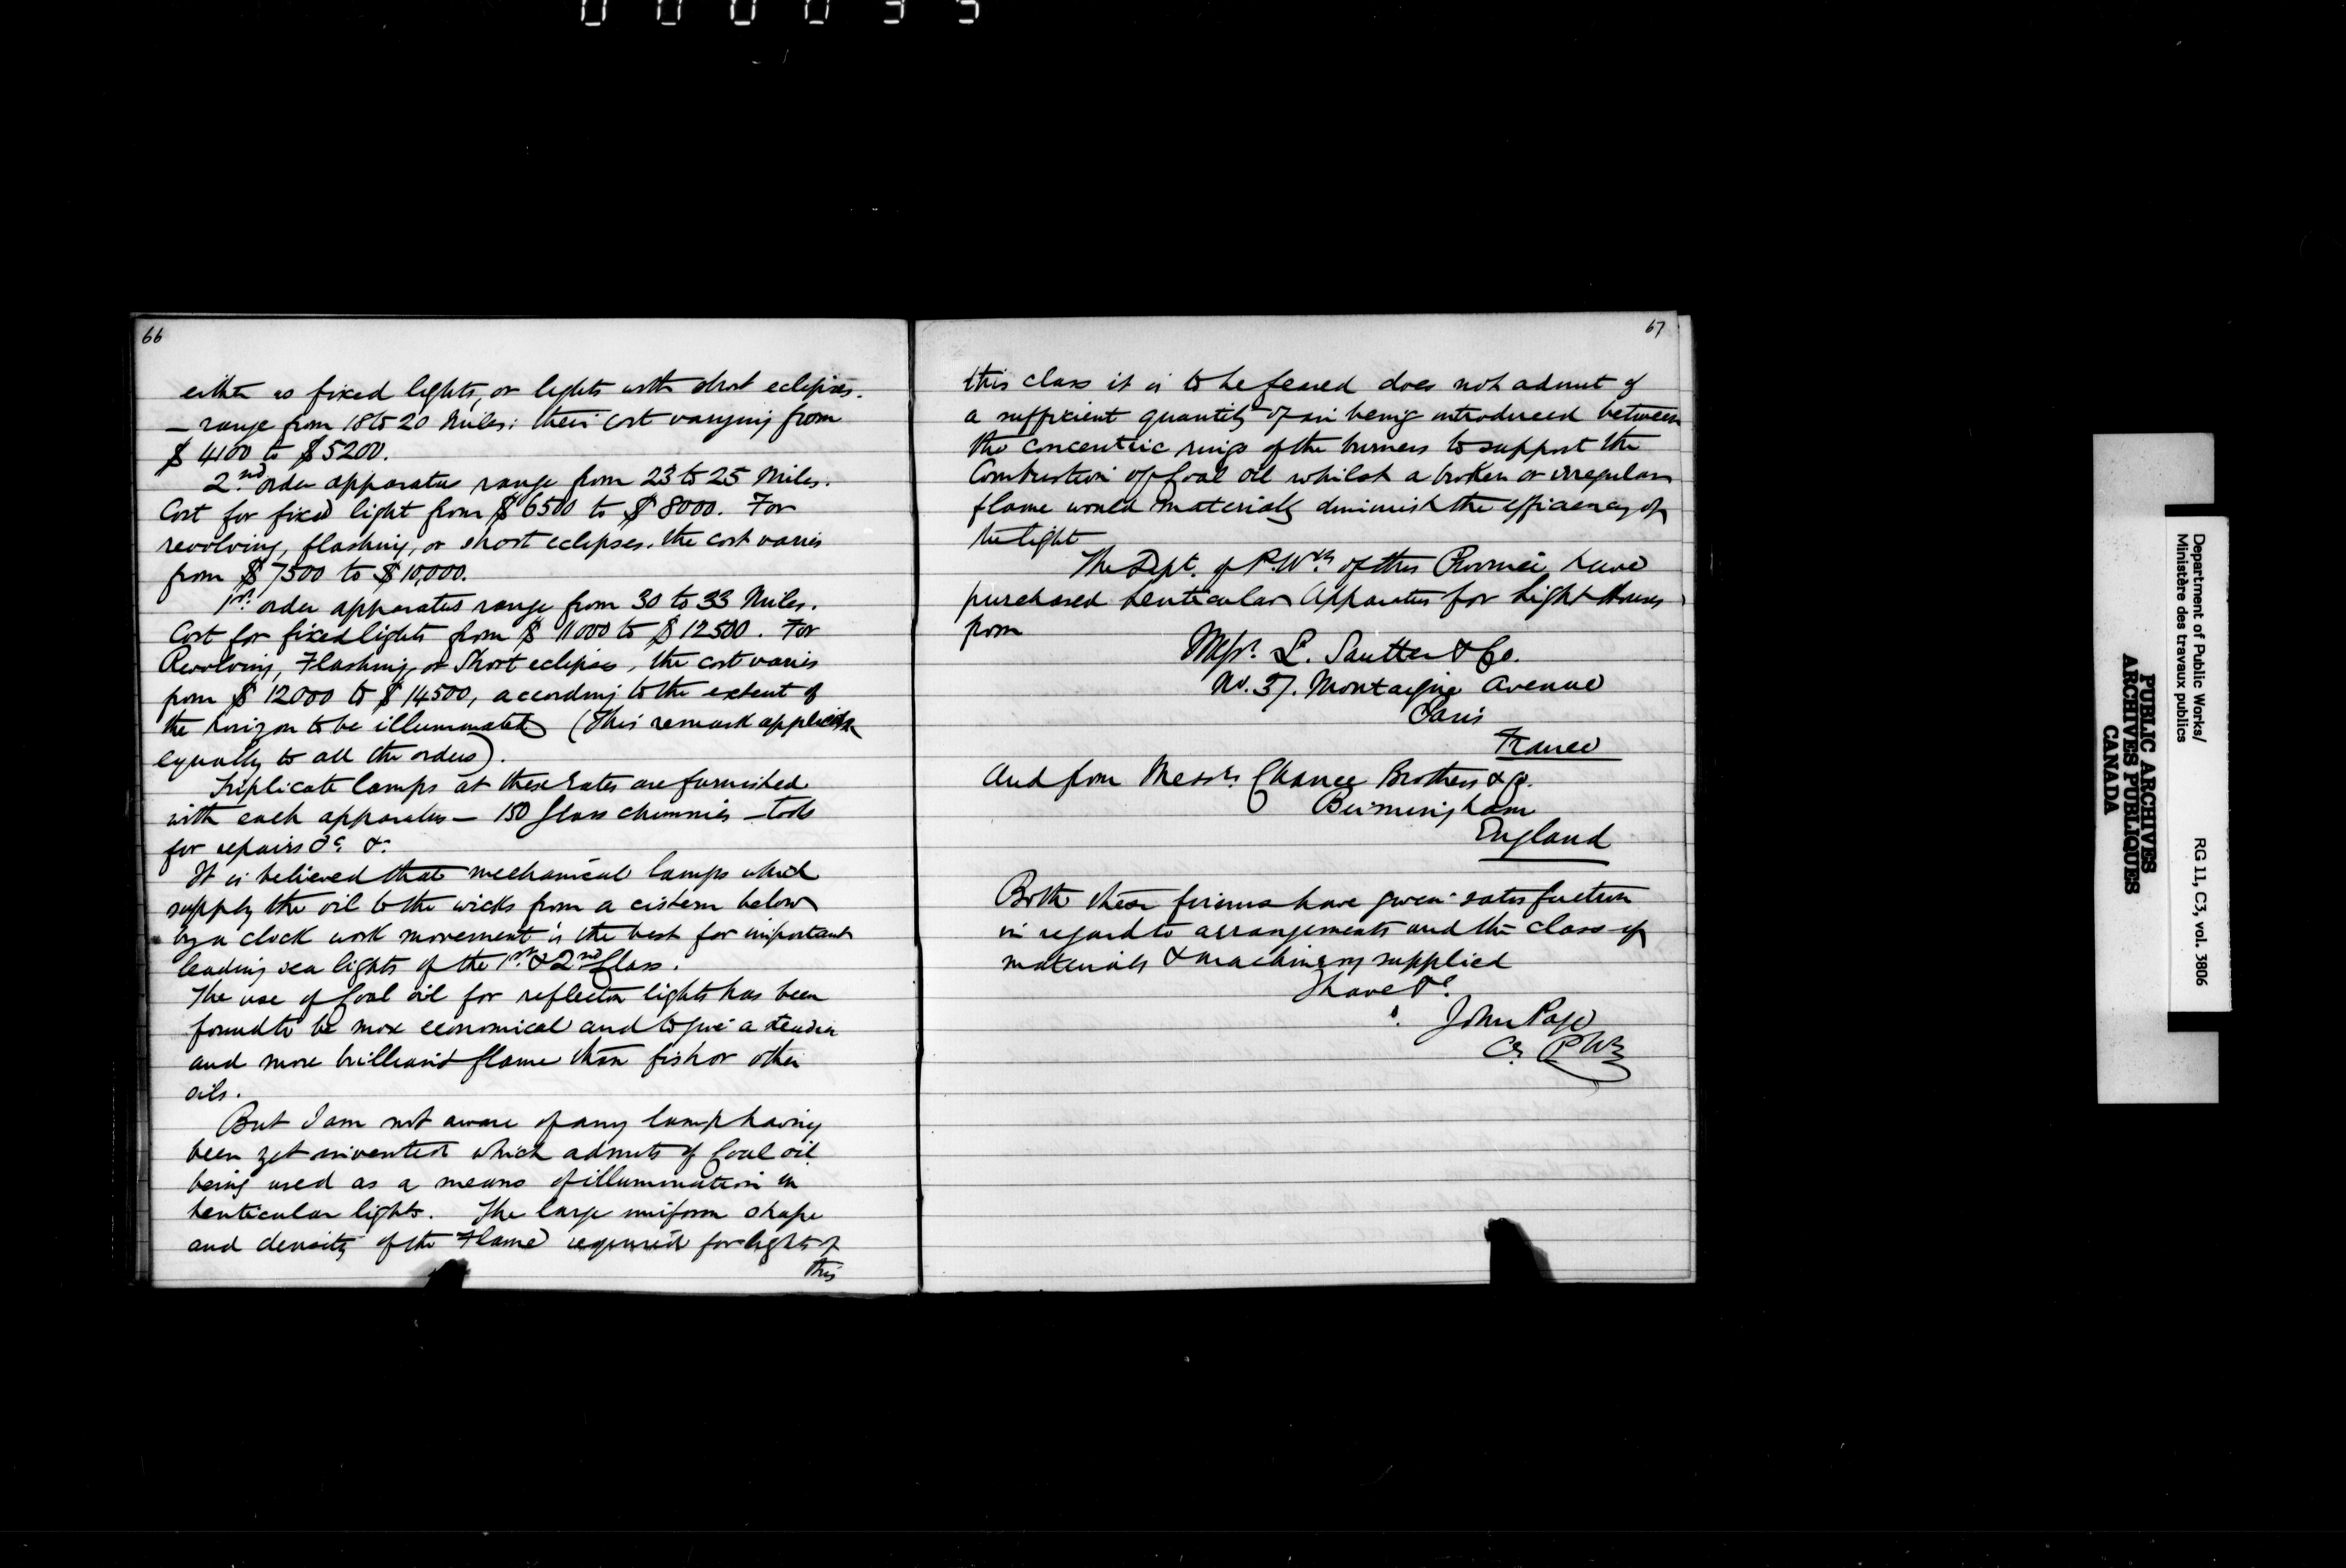 000035
66
either as fixed lights, or lights with short eclipses.
— range from 18 to 20 Miles: their cost varying from
$4100 to $5200.
2nd order apparatus range from 23 to 25 Miles.
Cost for fixed light from $6500 to $8000. For
revolving, flashing, or short eclipses, the cost varies
from $7500 to $10,000.
1st order apparatus range from 30 to 33 Miles.
Cost for fixed lights from $11000 to $12500. For
Revolving, Flashing, or Short eclipses, the cost varies
from $12000 to $14500, according to the extent of
the horizon to be illuminated (this remark applicable
equally to all the orders).
Triplicate lamps at these rates are furnished
with each apparatus — 150 glass chimnies — tools
for repairs &c. &c
It is believed that mechanical lamps which
supply the oil to the wicks from a cistern below
by a clock work movement is the best for important
leading sea lights of the 1st & 2nd Class.
The use of Coal oil for reflector lights has been
found to be more economical and to give a steadier
and more brilliant flame than fish or other
oils.
But I am not aware of any lamp having
been yet invented which admits of Coal oil
being used as a means of illumination in
lenticular lights. The large uniform shape
and density of the Flame required for lights of
this
67
this class it is to be feared does not admit of
a sufficient quantity of air being introduced between
the concentric rings of the burners to support the
Combustion of Coal oil whilst a broken or irregular
flame would materially diminish the efficiency of
the light
The Dept. of P. Wks of this Province have
purchased Lenticular Apparatus for Light Houses
from
Messrs. L. Sautter & Co.
No. 37. Montaigne Avenue
Paris
France
And from Messrs. Chance Brothers & Co.
Birmingham
England
Both these firms have given satisfaction
in regard to arrangements and the class of
materials & machinery supplied
I have &c
John Page
CE PWks
Department of Public Works/
Ministère des travaux publics
RG 11, C3, vol. 3806
PUBLIC ARCHIVES
ARCHIVES PUBLIQUES
CANADA